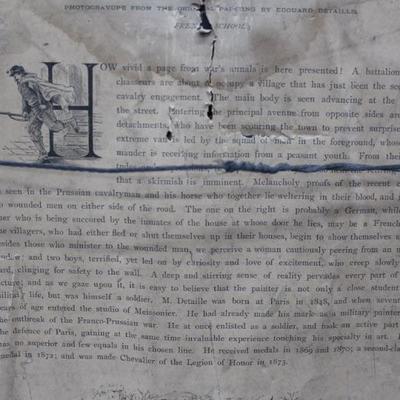 PHOTOGRAVURE FROM THE ORIGINAL PAINTING BY EDOUARD DETAILLE.
FRENCH SCHOOL.
HOW vivid a page from war's annals is here presented! A battalion
chasseurs are about to occupy a village that has just been the sce
cavalry engagement. The main body is seen advancing at the
the street. Entering the principal avenue from opposite sides are
detachments, who have been scouring the town to prevent surprise
extreme van is led by the squad of men in the foreground, whose
mander is receiving information from a peasant youth. From thei
that a skirmish is imminent. Melancholy proofs of the recent c
seen in the Prussian cavalryman and his horse who together lie weltering in their blood, and
o wounded men on either side of the road. The one on the right is probably a German, while
her who is being succored by the inmates of the house at whose door he lies, may be a French
he villagers, who had either fled or shut themselves up in their houses, begin to show themselves a
sides those who minister to the wounded man, we perceive a woman cautiously peering from an u
ndow; and two boys, terrified, yet led on by curiosity and love of excitement, who creep slowly
ard, clinging for safety to the wall. A deep and stirring sense of reality pervades every part of
cture; and as we gaze upon it, it is easy to believe that the painter is not only a close student
military life, but was himself a soldier. M. Detaille was born at Paris in 1848, and when sevent
ears of age entered the studio of Meissonier. He had already made his mark as a military painter
the outbreak of the Franco-Prussian war. He at once enlisted as a soldier, and took an active part
he defence of Paris, gaining at the same time invaluable experience touching his specialty in art. H
has no superior and few equals in his chosen line. He received medals in 1869 and 1870; a second-clas
medal in 1872; and was made Chevalier of the Legion of Honor in 1873.